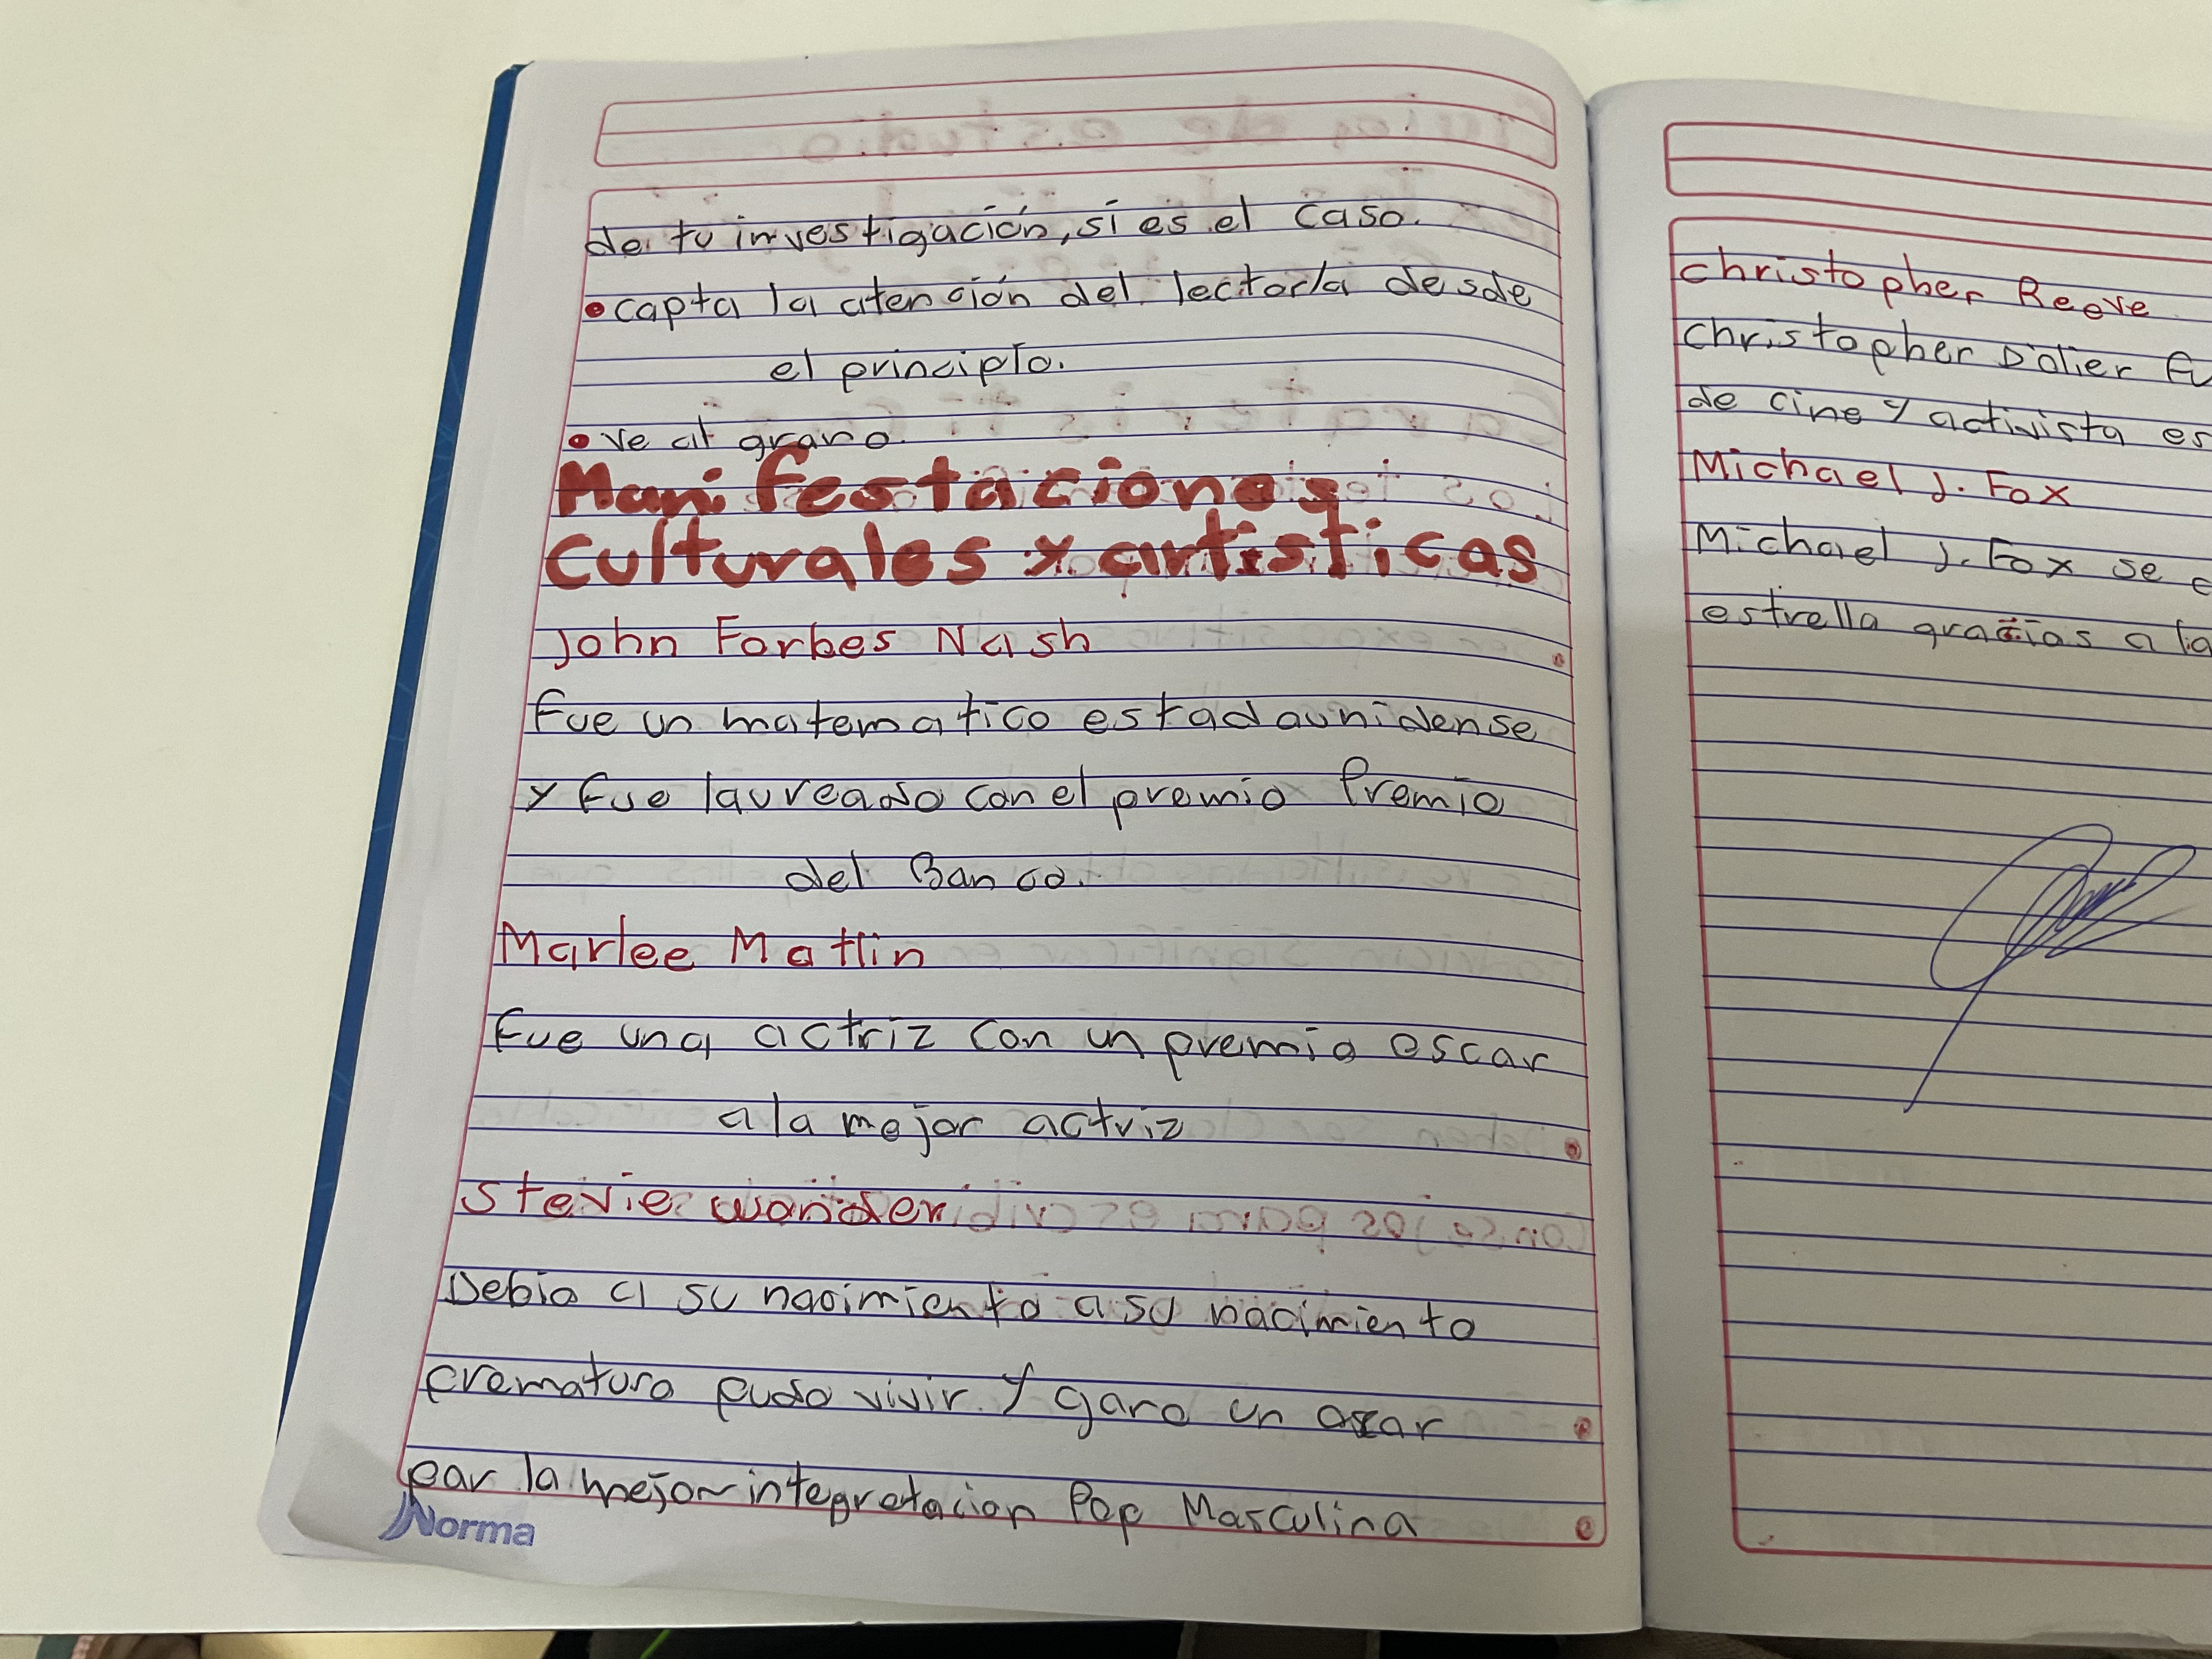 de tu investigación, si es el caso.
• capta la atención del lector/a desde
el principio.
• ve al grano.
Manifestaciones
Culturales y artisticas
John Forbes Nash
fue un matematico estadaunidense
y fue laureado con el premio Premio
del Banco.
Marlee Matlin
Fue una actriz con un premio oscar
a la mejor actriz
stevie wonder
Debio a su nacimiento a su nacimiento
prematuro pudo vivir y gano un oscar
por la mejor integretacion Pop Masculina
Norma
christopher Reeve
christopher D'olier fu
de cine y activista es
Michael J. Fox
Michael J. Fox se e
estrella gracias a la